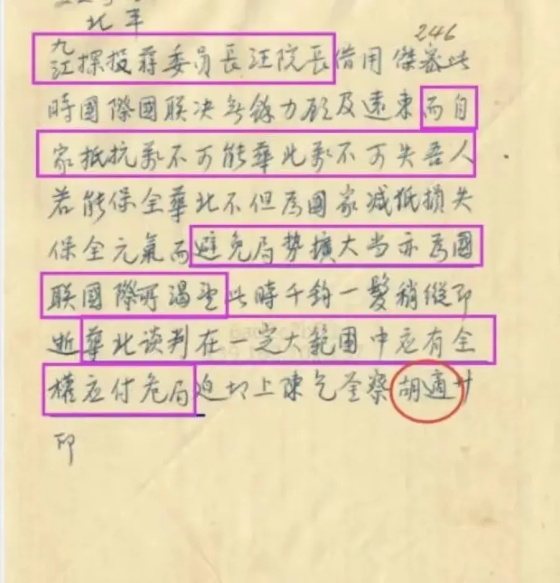 北平
246
九江探投蒋委員長汪院長借用傑密此
時國際國联决無餘力顧及遠東而自
家抵抗萬不可能華北萬不可失吾人
若能保全華北不但為國家减抵損失
保全元氣而避免局势擴大当亦為國
联國際所渴望此時千鈞一髮稍縱即
逝華北谈判在一定大範围中应有全
權应付危局迫切上陳乞鉴察胡適廿
印